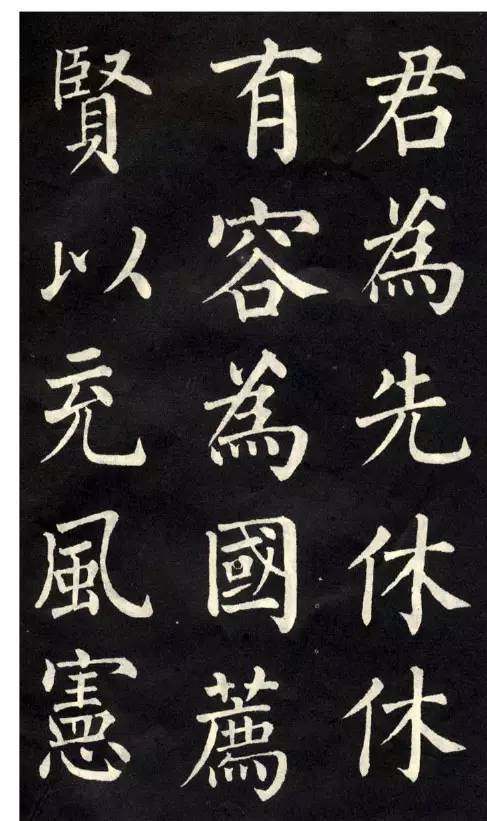 君為先休休
有容為國薦
賢以充風憲